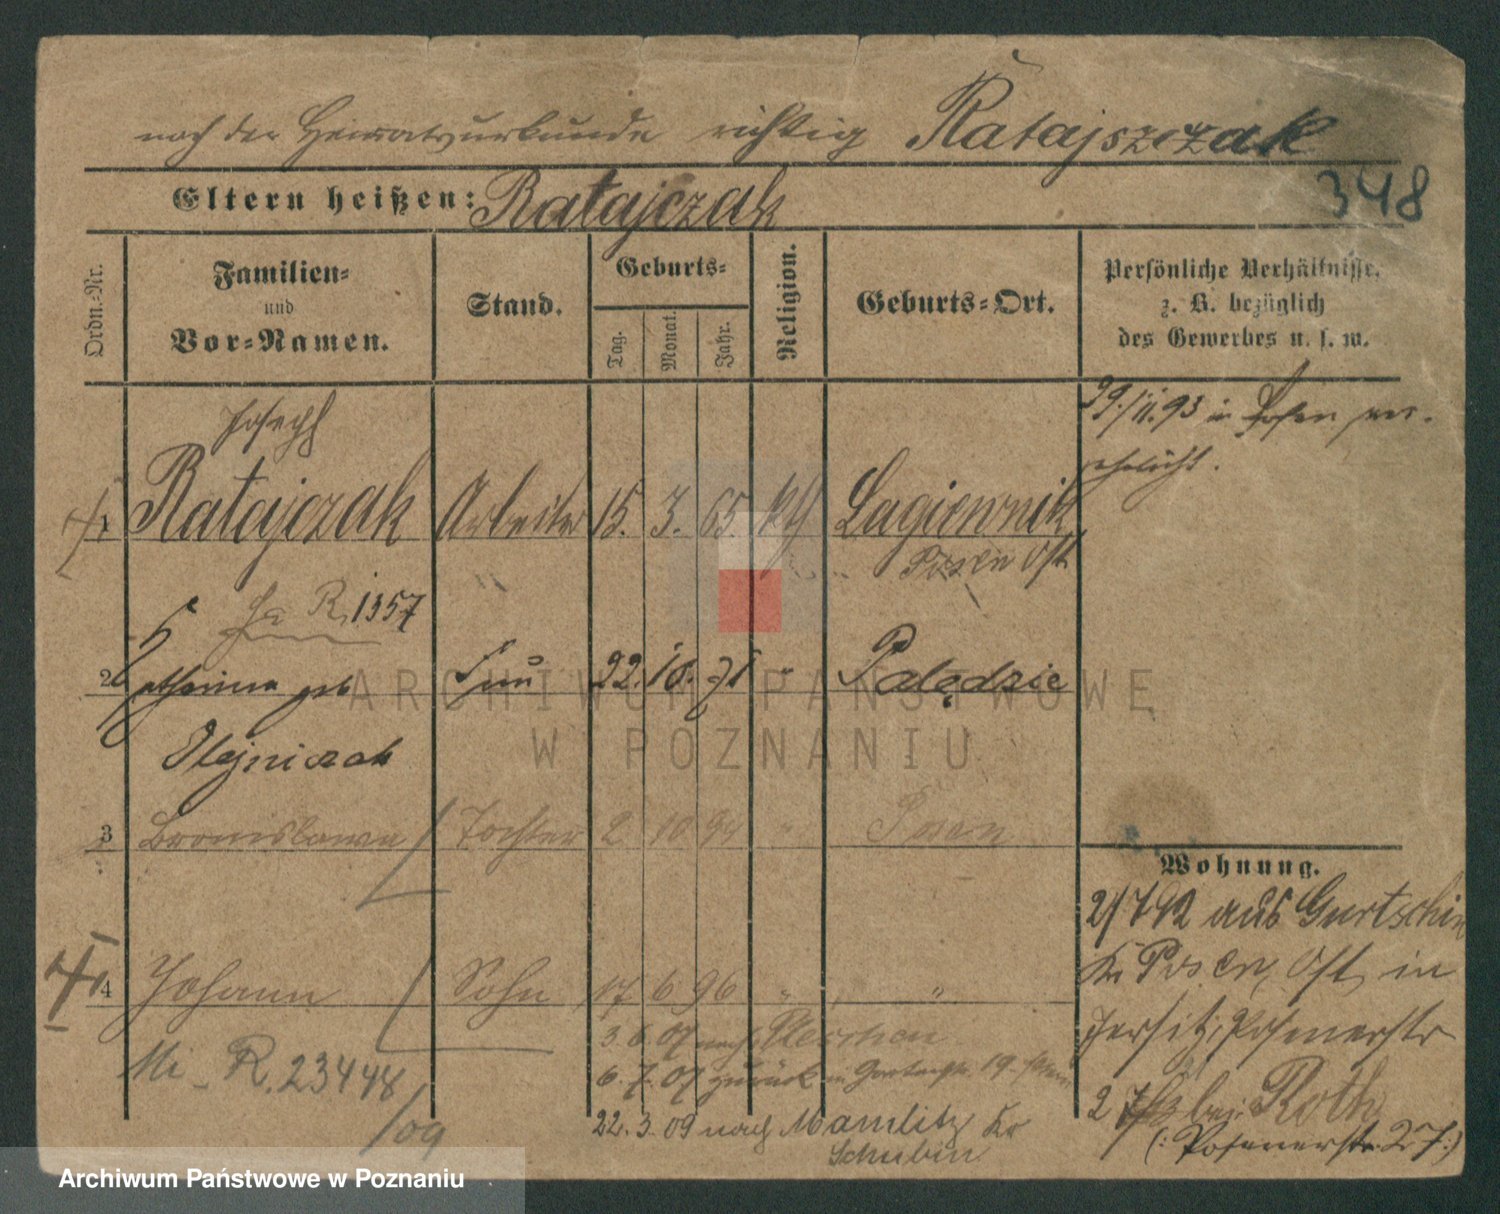 nach der Heiratsurkunde richtig Ratajszczak
Eltern heißen: Ratajczak
348
Ordn.-Nr.
Familien-
und
Vor-Namen.
Stand.
Geburts-
Tag.
Monat.
Jahr.
Religion.
Geburts-Ort.
Persönliche Verhältnisse,
z. B. bezüglich
des Gewerbes u. s. w.
29./11.93 in Posen ver-
ehelicht.
Joseph
1 Ratajczak Arbeiter 15. 3. 65. Lagiewnik
Posen Ost
R. 1357
2 Catharina geb Frau 22. 10. 71 " Palędzie
Olejniczak
3 Bronislawa Tochter 2 10 94 " Posen
4 Johann Sohn 17 6 96 " "
3. 6. 07 nach Pleschen
Mi - R. 23448
6. 7. 07 zurück 19.
/09
22. 3. 09 nach Mamlitz Kr
Schubin
Wohnung.
2/7 92 aus Gurtschin
Kr Posen Ost, in
Jersitz, Posenerstr
2 bei Roth
(: Posenerstr. 27 :)
ARCHIWUM PAŃSTWOWE
W POZNANIU
Archiwum Państwowe w Poznaniu